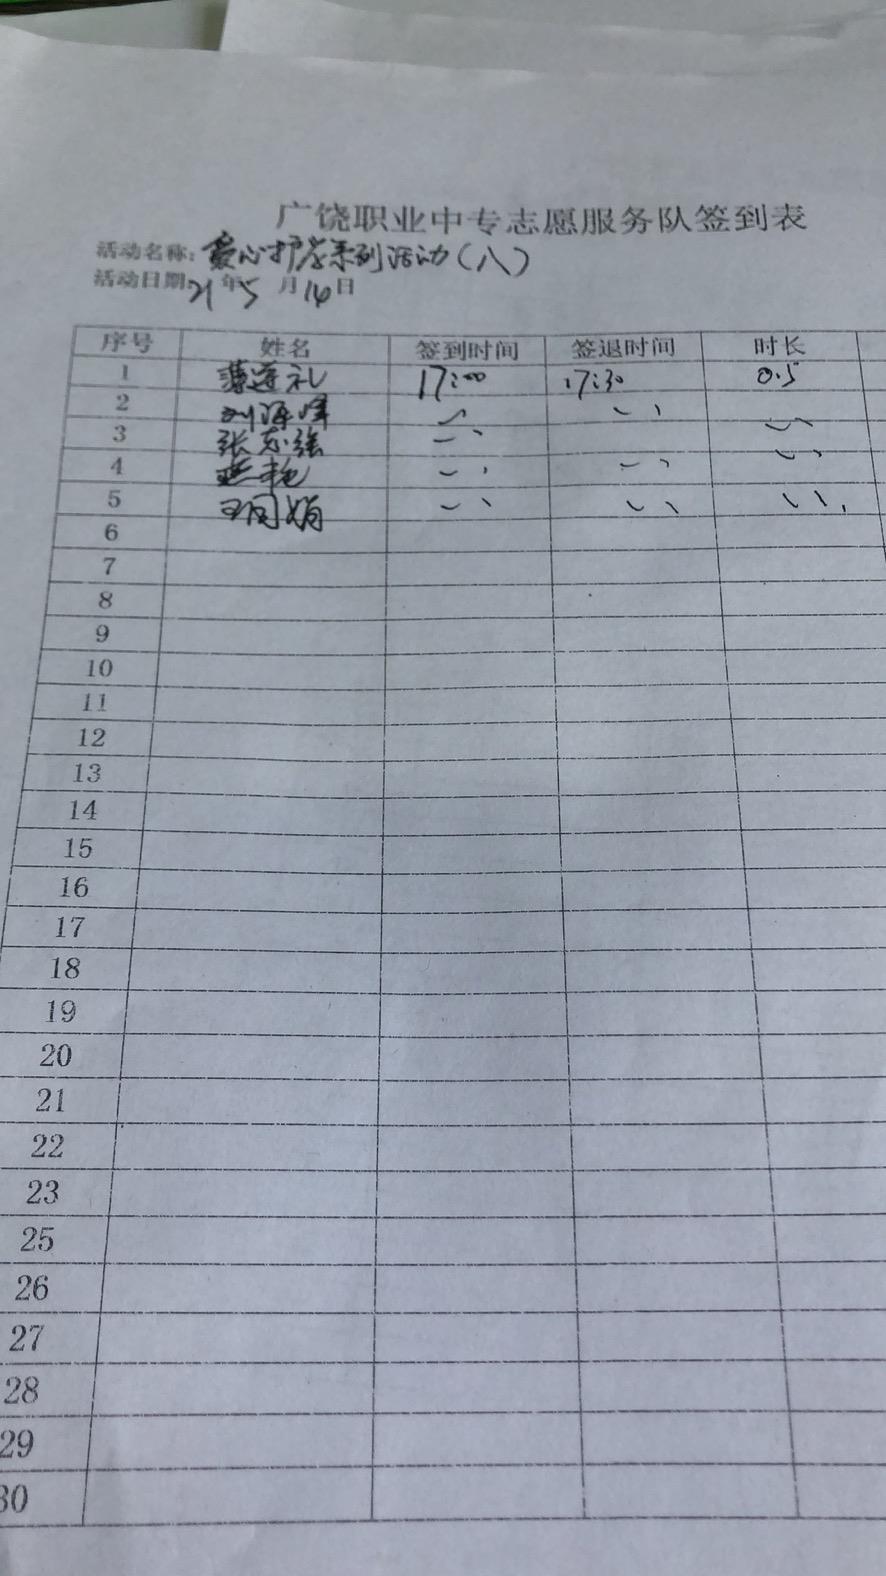 广饶职业中专志愿服务队签到表
活动名称: 爱心护学系列活动(八)
活动日期: 21年5月14日
序号 姓名 签到时间 签退时间 时长
1 薄莲礼 17:00 17:30 0.5
2 刘海峰 〃 〃 〃
3 张志强 〃 〃
4 艳 〃 〃
5 王同娟 〃 〃 〃
6
7
8
9
10
11
12
13
14
15
16
17
18
19
20
21
22
23
25
26
27
28
29
30